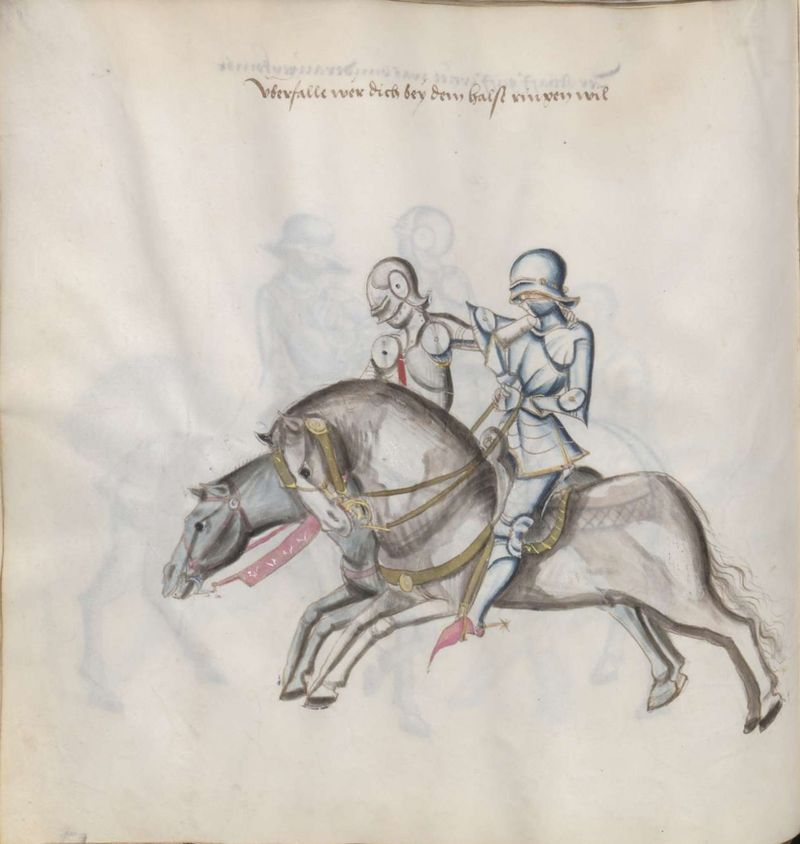 Vberfalle wer dich bey dem halsz ringen wil